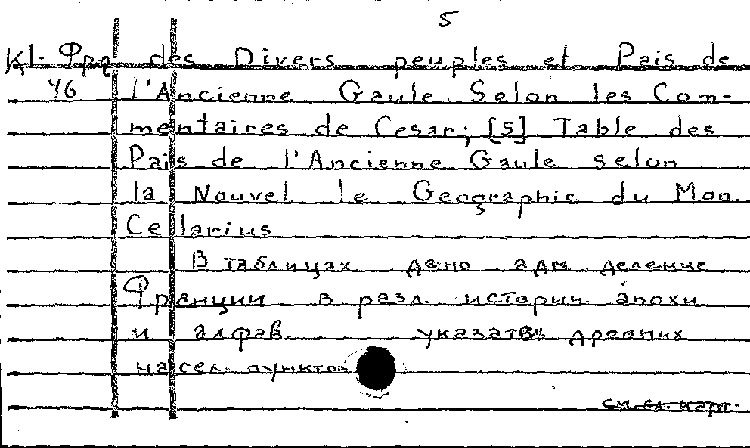 5
К1-Фра des Divers peuples et Pais de
46 l'Ancienne Gaule Selon les Com-
mentaires de Cesar; [5] Table des
Pais de l'Ancienne Gaule selon
la Nouvel le Geographie du Mon.
Cellarius
В таблицах дано адм деление
Франции в разл. историч эпохи
и алфав. указатель древних
насел. пунктов
см. сл. карт.